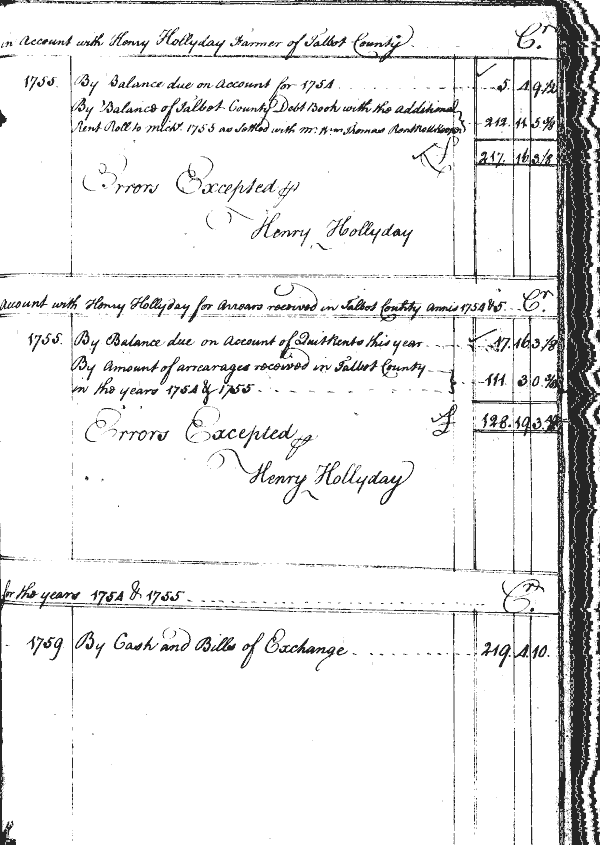 in Account with Henry Hollyday Farmer of Talbot County Cr.
1755. By Balance due on Account for 1754 5. 4. 9 1/2
By Balance of Talbot County Debt Book with the additional
Rent Roll to Michs. 1755 as settled with Mr. Wm Thomas Rent Roll Keeper 212. 11. 5
217. 16. 3
Errors Excepted
Henry Hollyday
Account with Henry Hollyday for Arrears received in Talbot County Annis 1754 & 5 Cr.
1755. By Balance due on Account of Quitrents this year 17. 16. 3
By Amount of arrearages received in Talbot County
in the years 1754 & 1755 111. 3. 0
128. 19. 3
Errors Excepted
Henry Hollyday
for the years 1754 & 1755 Cr.
1759 By Cash and Bills of Exchange 219. 4. 10.